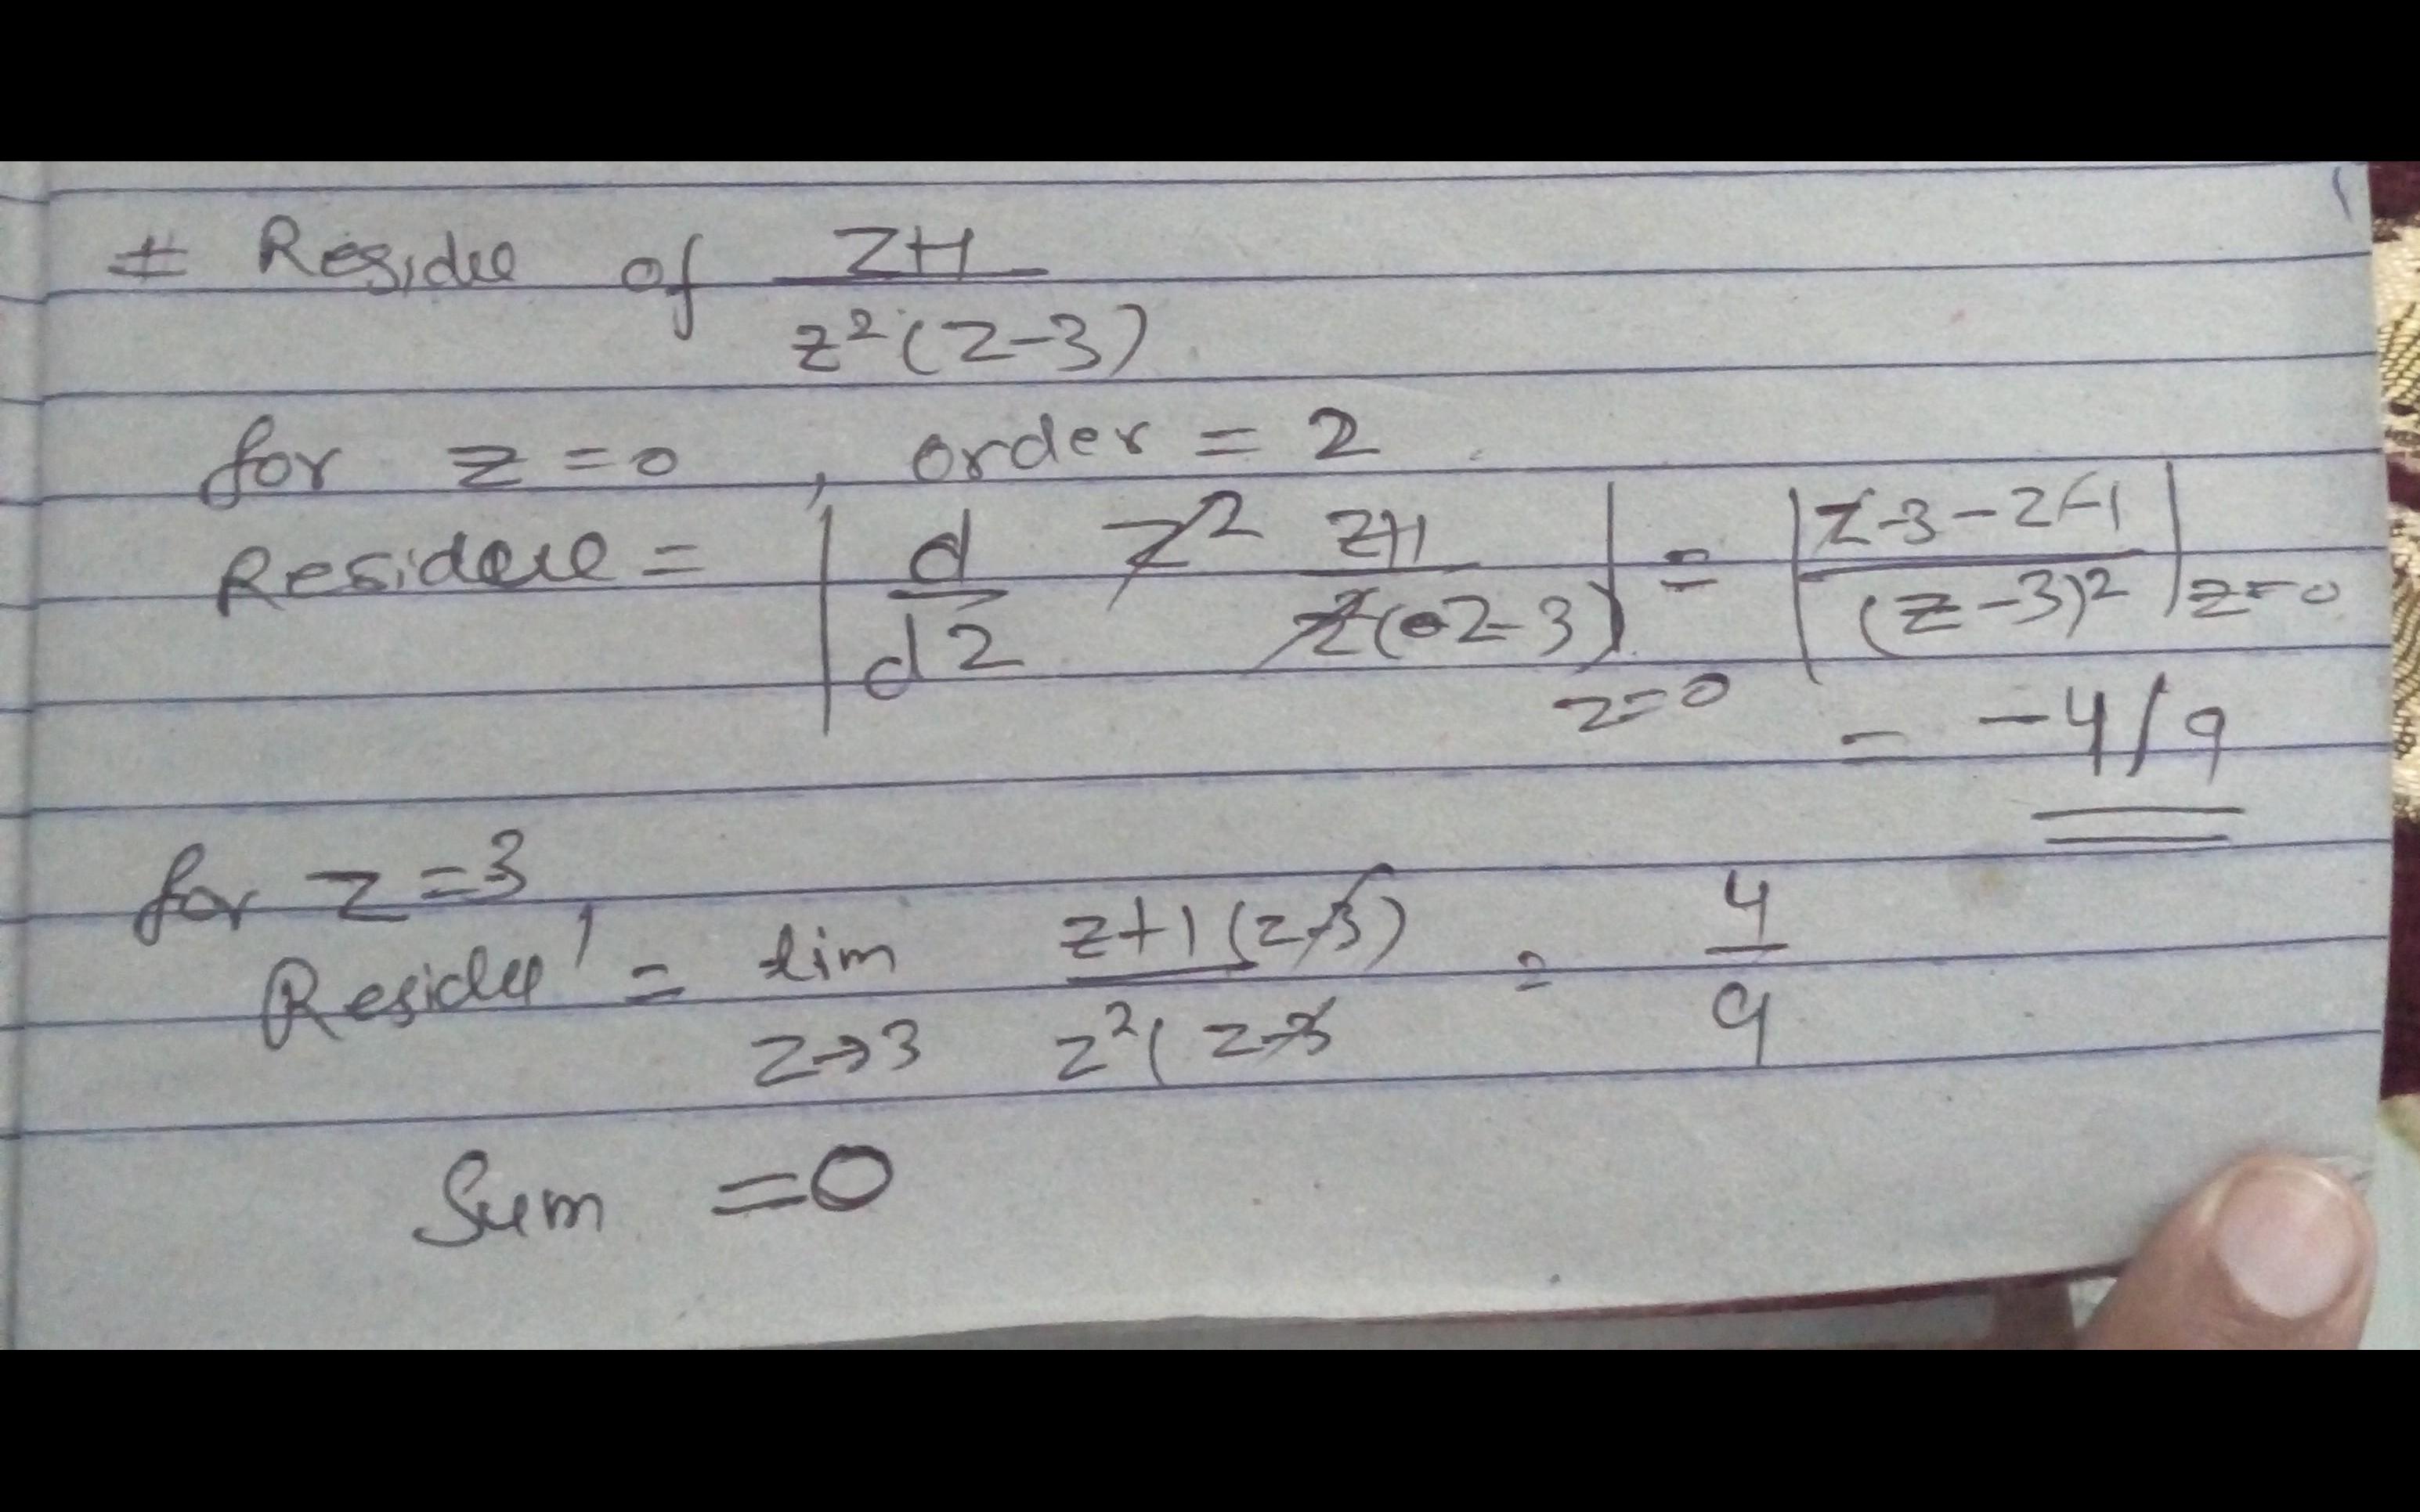 # Residue of z+1
z²(z-3)
for z=0, order = 2
Residue = | d/dz z² z+1/z²(z-3) | z=0 = | z-3-z-1/(z-3)² | z=0
= -4/9
for z=3
Residue' = lim z→3 z+1(z-3)/z²(z-3 = 4/9
Sum =0